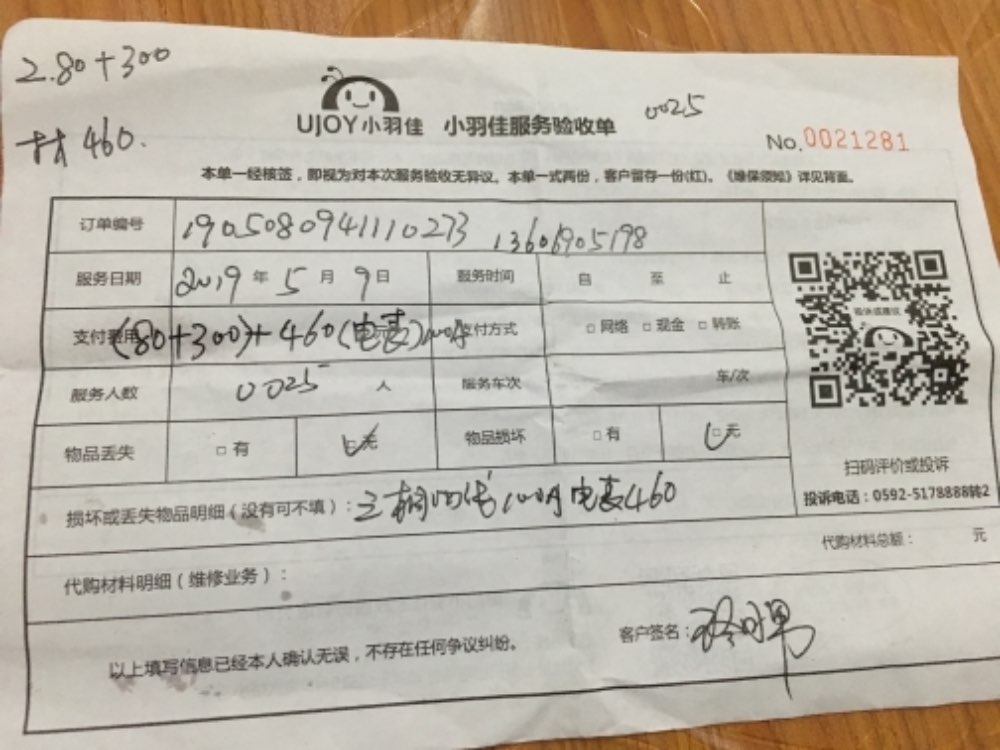 2.80+300
材460.
UJOY小羽佳 小羽佳服务验收单
0025
No.0021281
本单一经核签，即视为对本次服务验收无异议。本单一式两份，客户留存一份(红)。《维保须知》详见背面。
订单编号 19050809411110273 13606905198
服务日期 2019年5月9日 服务时间 自 至 止
支付费用 (80+300)+460(电表)100A 支付方式 □网络 □现金 □转账
服务人数 0025 人 服务车次 车/次
物品丢失 □有 □无 物品损坏 □有 □无
投诉或建议
扫码评价或投诉
投诉电话：0592-5178888转2
损坏或丢失物品明细（没有可不填）：三相四线100A电表460
代购材料总额： 元
代购材料明细（维修业务）：
客户签名：
以上填写信息已经本人确认无误，不存在任何争议纠纷。